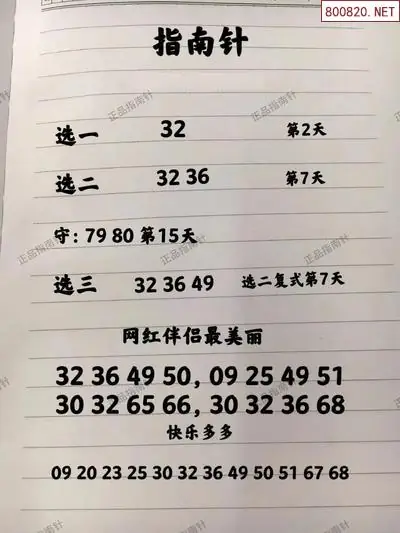 800820.NET
指南针
选一 32 第2天
选二 32 36 第7天
守：79 80 第15天
选三 32 36 49 选二复式第7天
网红伴侣最美丽
32 36 49 50，09 25 49 51
30 32 65 66，30 32 36 68
快乐多多
09 20 23 25 30 32 36 49 50 51 67 68
正品指南针
正品指南针
正品指南针
正品指南针
正品指南针
正品指南针
正品指南针
正品指南针